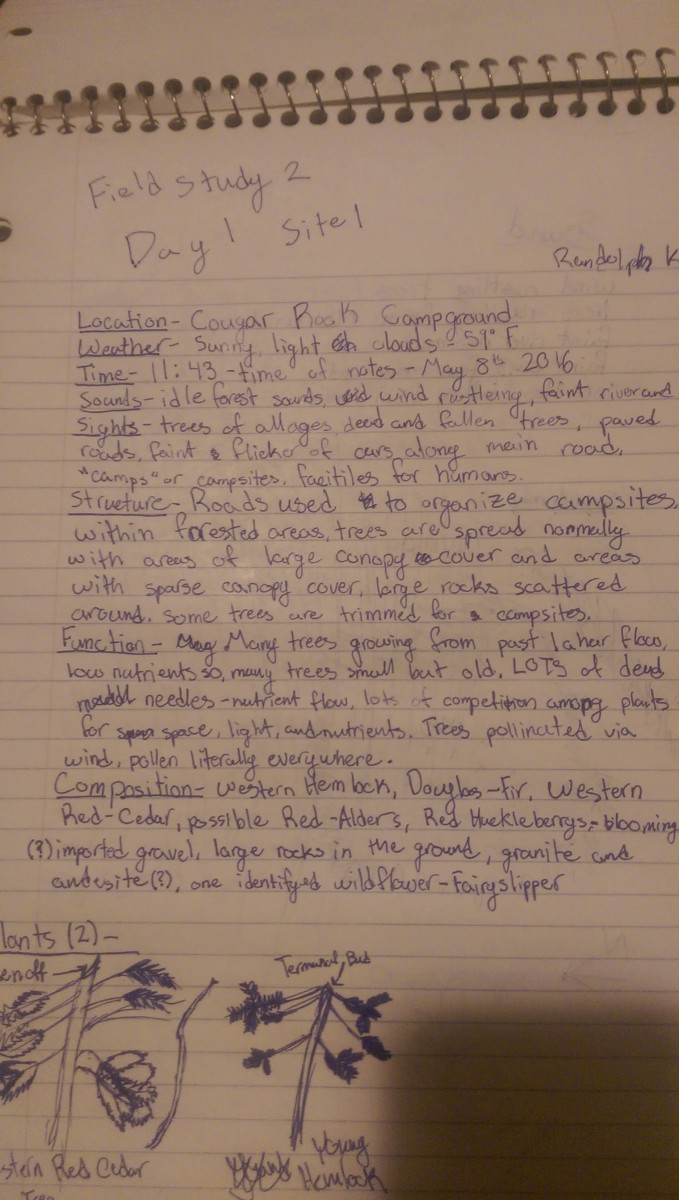 Field Study 2
Day 1 Site 1
Randolph K
Location - Cougar Rock Campground
Weather - Sunny, light clouds - 59° F
Time - 11:43 - time of notes - May 8th 2016
Sounds - idle forest sounds, wind rustleing, faint river and
Sights - trees of all ages, dead and fallen trees, paved
roads, faint flicker of cars along main road,
"camps" or campsites, facitiles for humans.
Structure - Roads used to organize campsites,
within forested areas, trees are spread normally
with areas of large canopy cover and areas
with sparse canopy cover, large rocks scattered
around. Some trees are trimmed for campsites.
Function - Many trees growing from past lahar flow,
low nutrients so, many trees small but old, LOTS of dead
needles - nutrient flow, lots of competition among plants
for space, light, and nutrients. Trees pollinated via
wind, pollen literally everywhere.
Composition - Western Hemlock, Douglas-Fir, Western
Red-Cedar, possible Red-Alders, Red Huckleberrys - blooming
(?) imported gravel, large rocks in the ground, granite and
andesite (?), one identifyed wildflower - Fairyslipper
lants (2) -
Terminal Bud
stern Red Cedar
Tree
Young
Hemlock